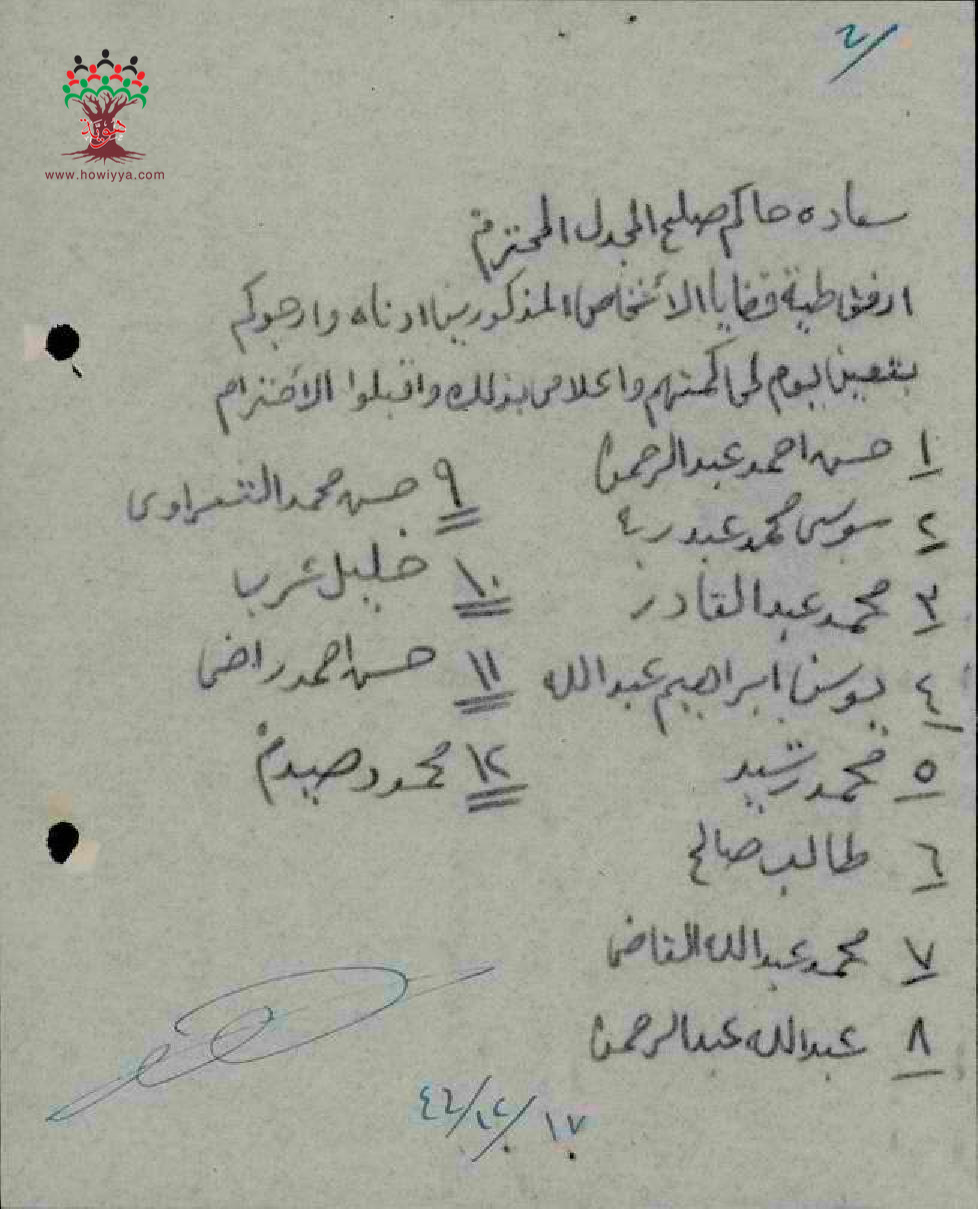 /٢
هوية
www.howiyya.com
سعاده حاكم صلح المجدل المحترم
ارفق طية قضايا الأشخاص المذكورين ادناه وارجوكم
بتعين يوم لمحاكمتهم واعلامى بذلك واقبلوا الأحترام
١ حسن احمد عبدالرحمن
٢ موسى محمد عبد ربه
٣ محمد عبد القادر
٤ يوسف ابراهيم عبد الله
٥ محمد رشيد
٦ طالب صالح
٧ محمد عبدالله القاضى
٨ عبدالله عبدالرحمن
٩ حسن محمد الشعراوى
١٠ خليل شربا
١١ حسن احمد راضى
١٢ محمود صيدم
١٧/١٢/٤٦